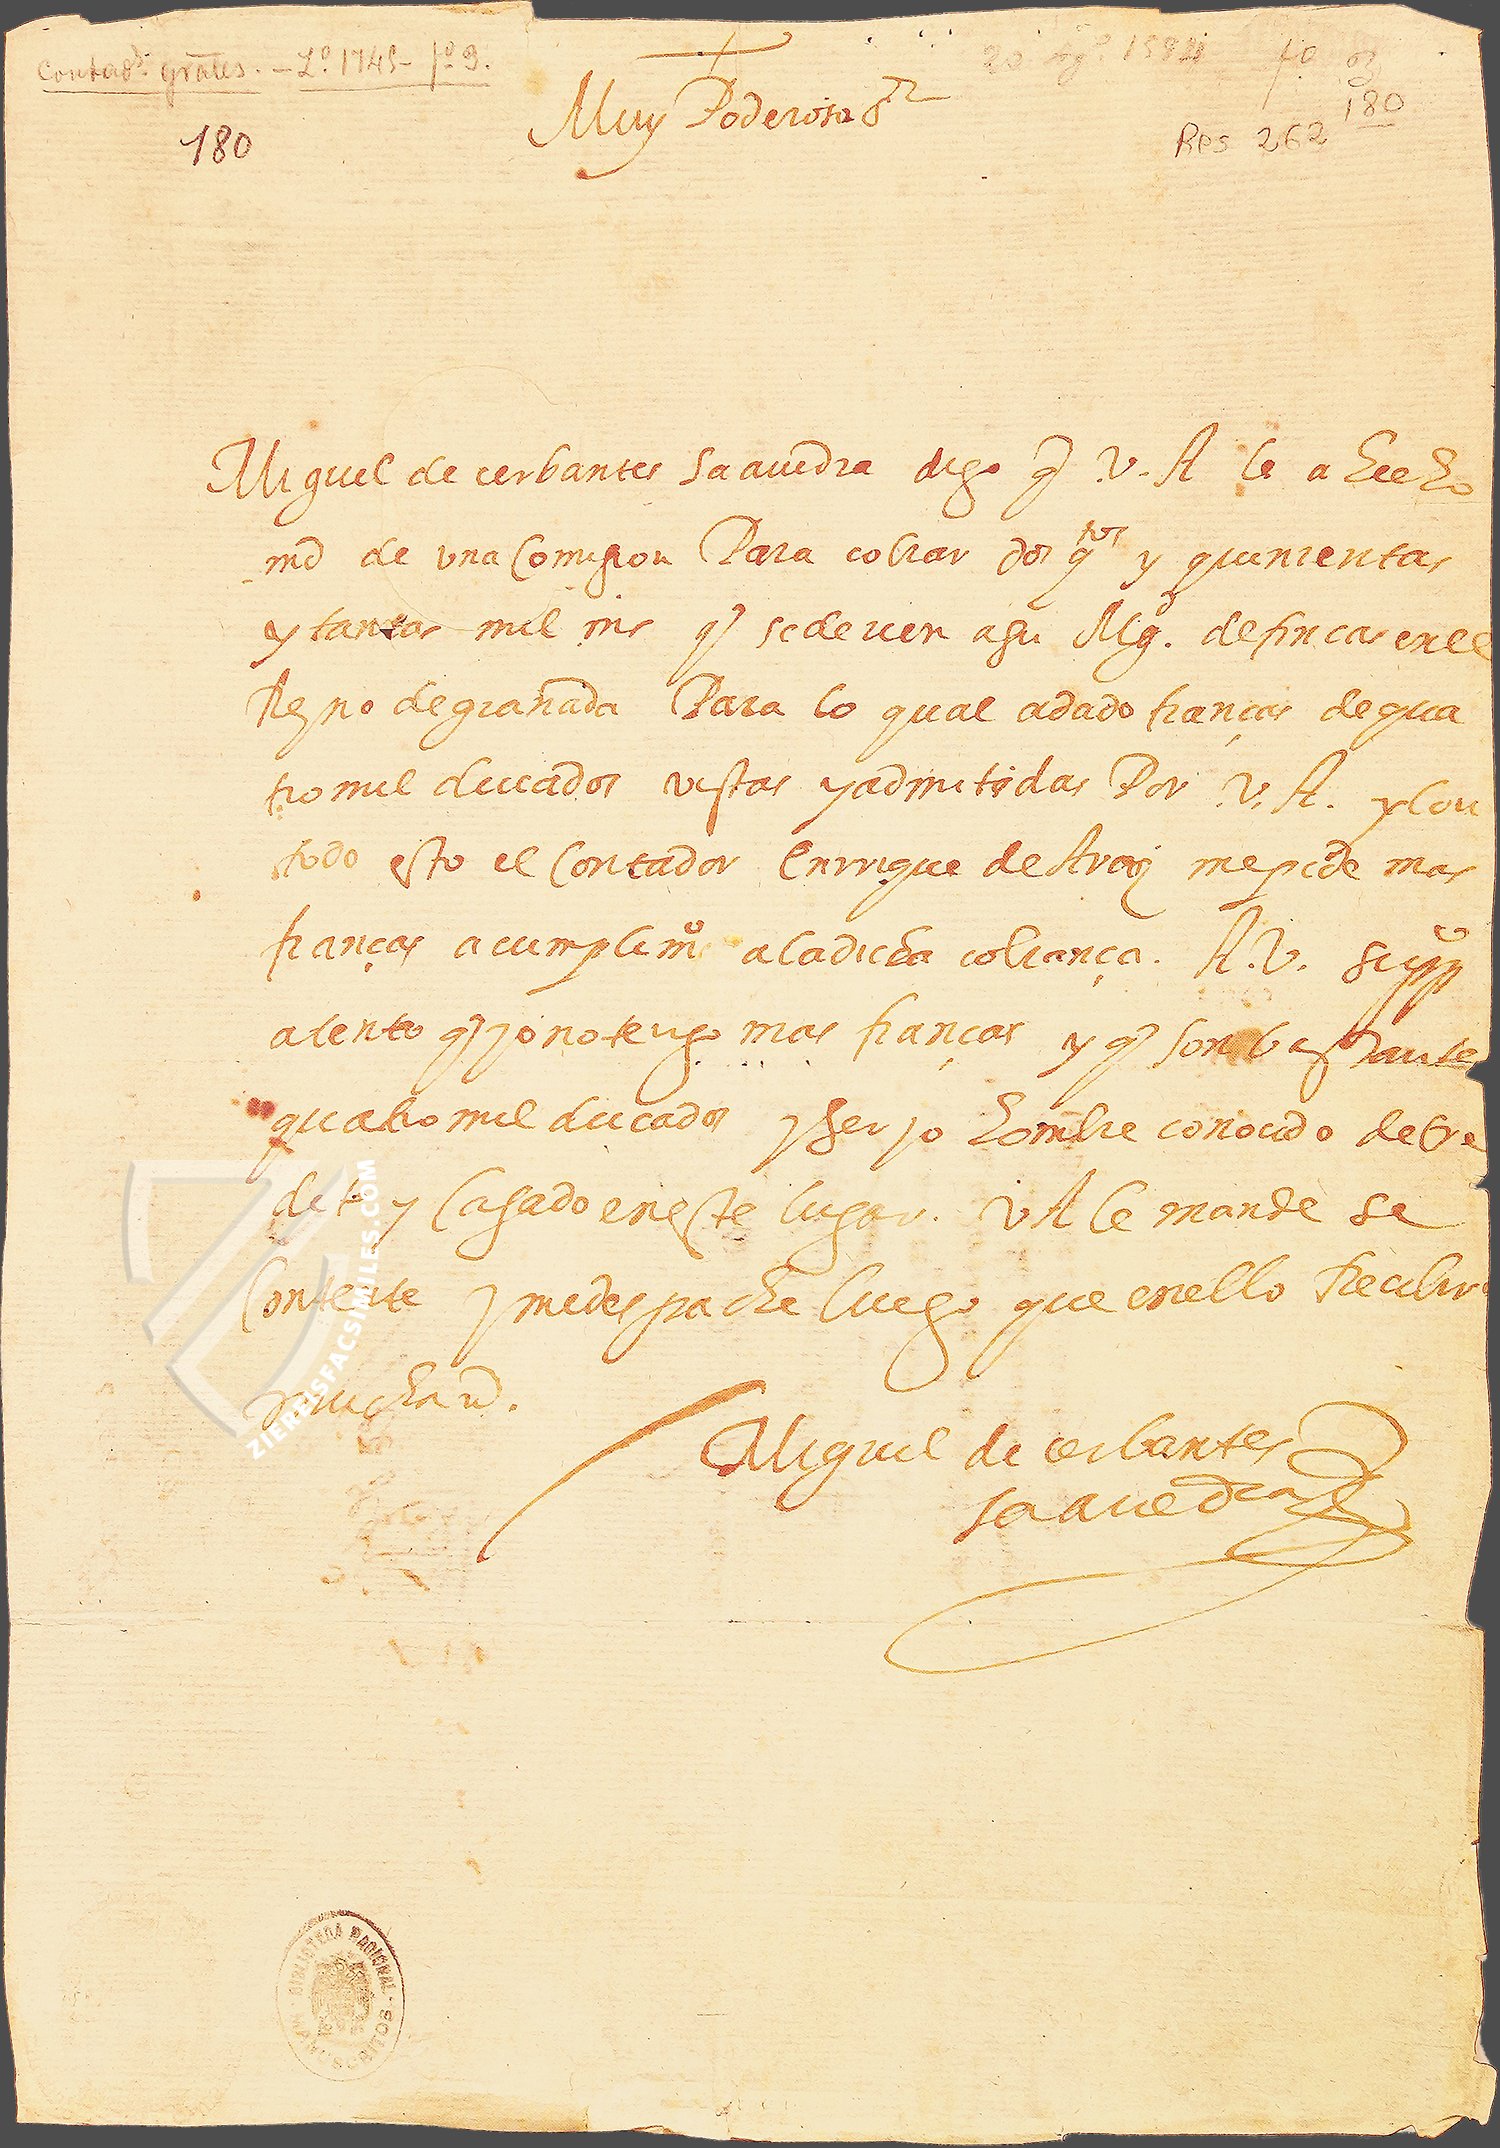 Contad.ª grāles. - L.º 1745 - f.º 9.
20 Ag.º 1594
fo 9
180
180
Res 262
Muy Poderoso Sr
Miguel de cerbantes saauedra digo q̃ V. A le a hecho
md de vna Comission Para cobrar dos qtos y quinientas
y tantas mil mrs q̃ se deuen a su Mgd. de fincas en el
Reyno de granada Para lo qual a dado fianças de qua
tro mil ducados vistas y admitidas Por V. A. y Con
todo esto el Contador Enrrique de Araiz me pide mas
fianças a cumplimº a la dicha cobrança. A. V. suppco
atento q̃ yo no tengo mas fianças y q̃ son bastante
quatro mil ducados y ser yo hombre conocido de cre
dito y Casado en este lugar. V A le mande se
Contente y me despache luego que en ello Recibir
mucha md.
Miguel de cerbantes
saauedra
BIBLIOTECA NACIONAL
MANUSCRITOS
ZIEREISFACSIMILES.COM